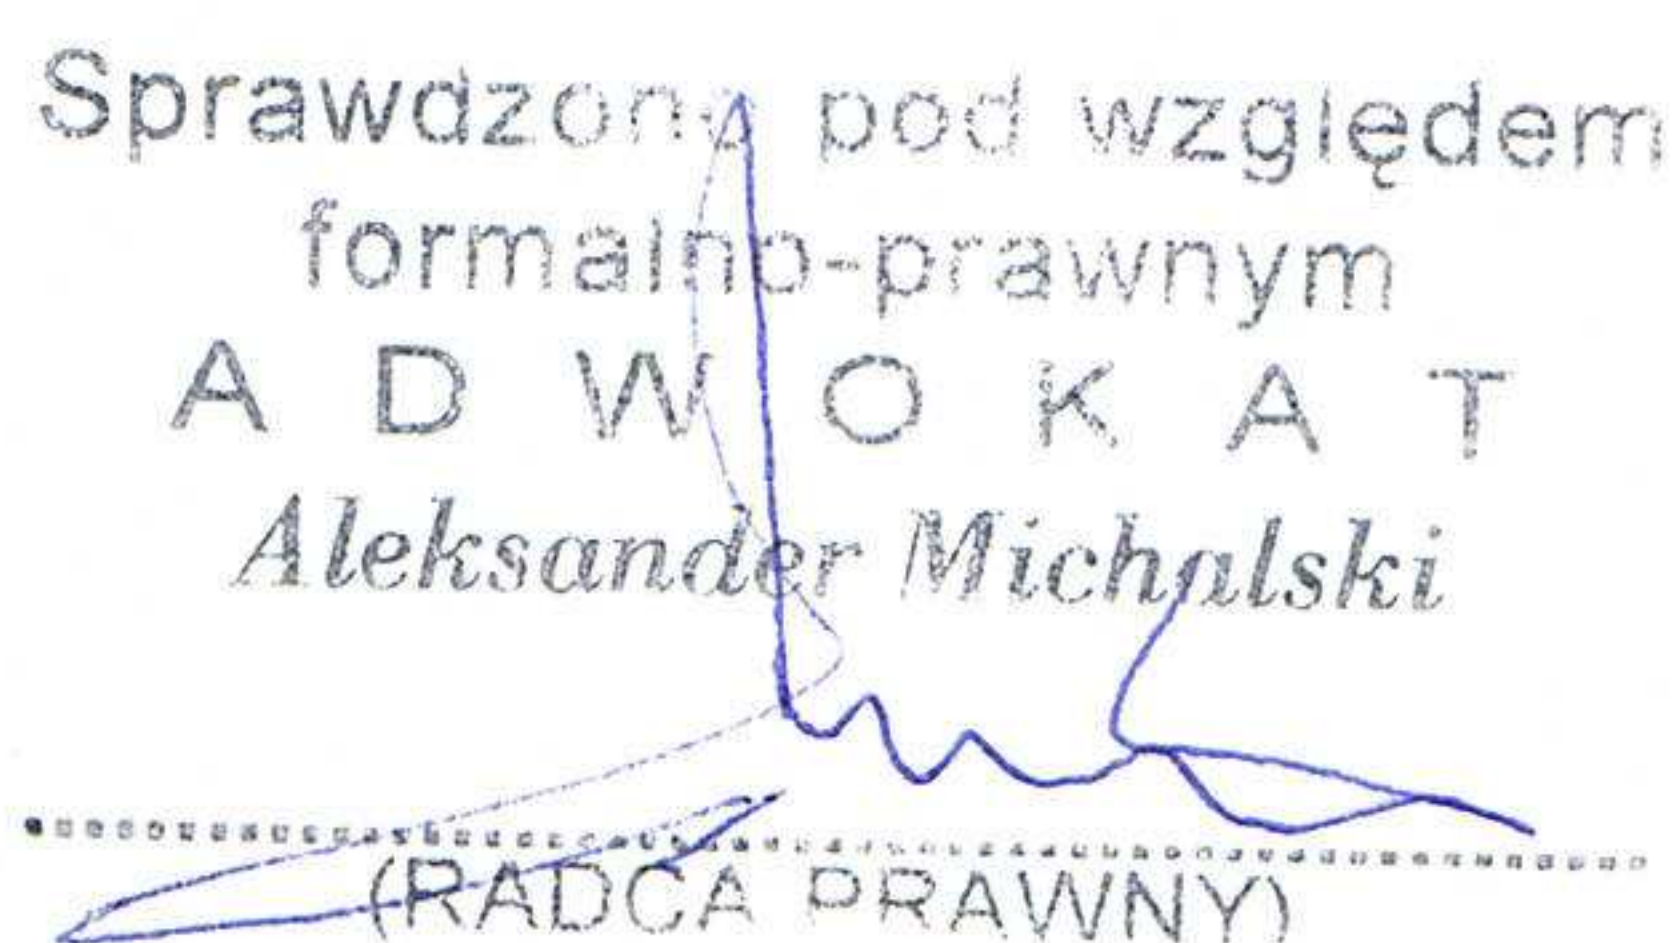 Sprawdzono pod względem
formalno-prawnym
A D W O K A T
Aleksander Michalski
(RADCA PRAWNY)